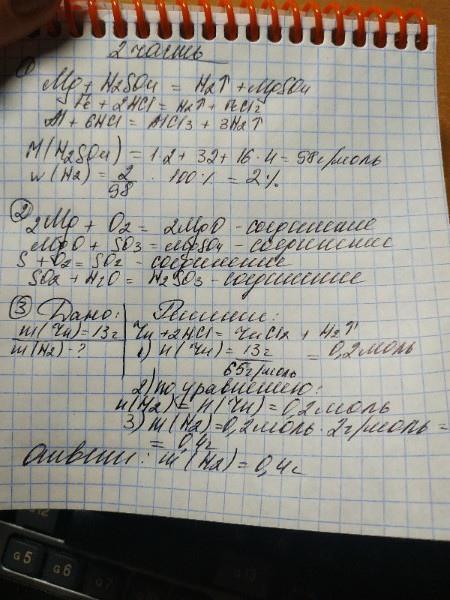 2 часть
①
Mg + H2SO4 = H2↑ + MgSO4
Fe + 2HCl = H2↑ + FeCl2
Al + 6HCl = AlCl3 + 3H2↑
M(H2SO4) = 1·2 + 32 + 16·4 = 98 г/моль
w(H2) = 2/98 · 100% = 2%
②
2Mg + O2 = 2MgO - соединение
MgO + SO3 = MgSO4 - соединение
S + O2 = SO2 - соединение
SO2 + H2O = H2SO3 - соединение
③ Дано: Решение:
m(Zn) = 13г Zn + 2HCl = ZnCl2 + H2↑
m(H2) - ? 1) n(Zn) = 13г / 65г/моль = 0,2 моль
2) по уравнению:
n(H2) = n(Zn) = 0,2 моль
3) m(H2) = 0,2 моль · 2г/моль =
= 0,4г
Ответ: m(H2) = 0,4г
G12
G5
G6
G7